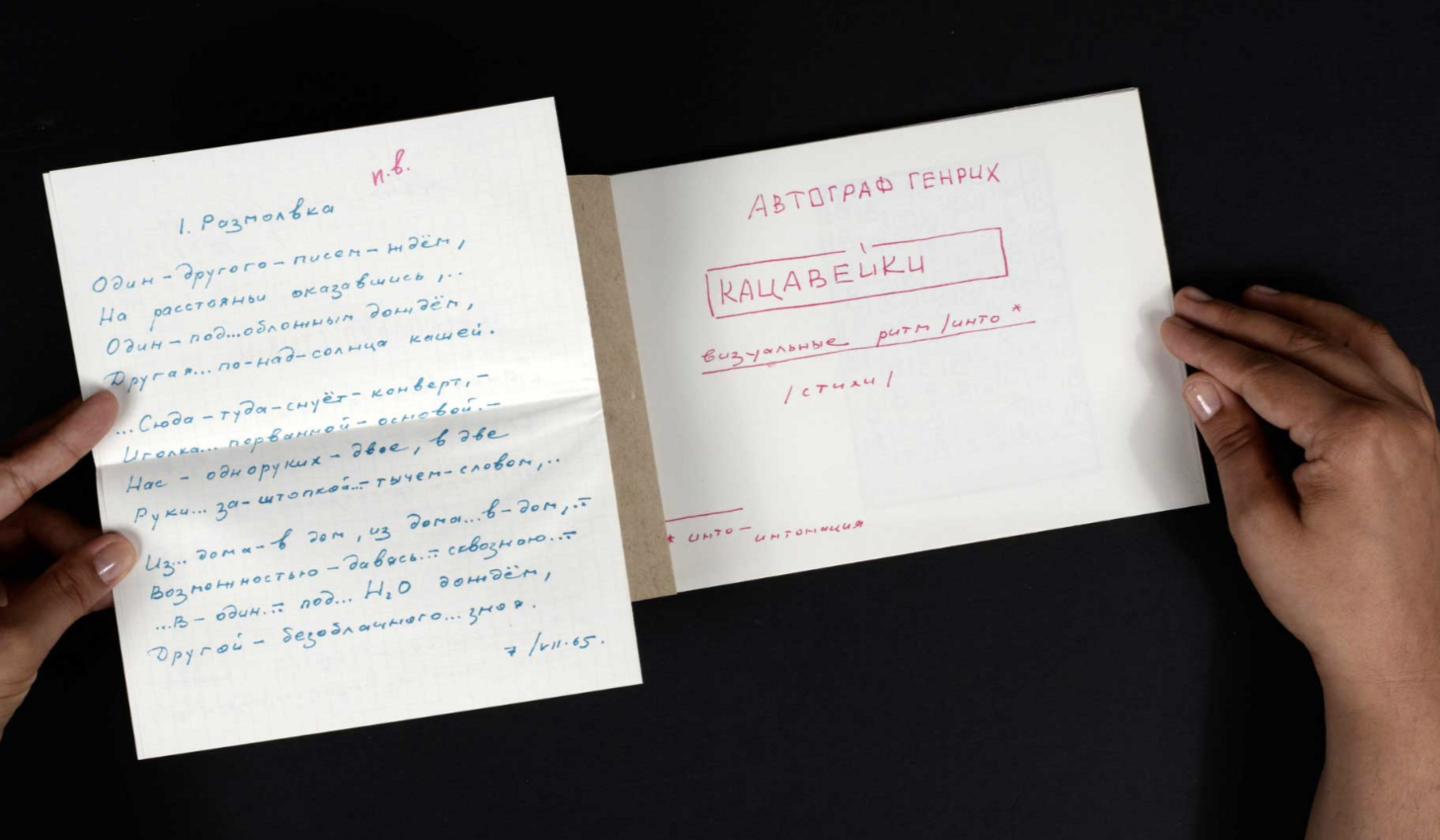 п.в.
1. Размолвка
Один-другого-писем-ждём,
На расстояньи оказавшись,..
Один-под...обложным дождём,
Другая...по-над-солнца кашей.
...Сюда-туда-снуёт-конверт,-
Иголка...порванной-основой.-
Нас-одноруких-двое, в две
Руки...за-штопкой...-тычем-словом,..
Из...дома-в дом, из дома...в-дом,..-
Возможностью-давась..-сквозною..-
...В-один..-под...H₂O дождём,
Другой-безоблачного...зноя.
7/VII·65.
АВТОГРАФ ГЕНРИХ
КАЦАВЕЙКИ
визуальные ритм/инто*
/стихи/
* инто-интонация